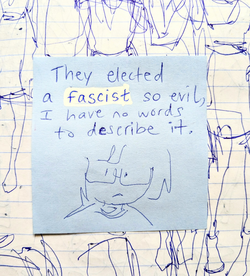 They elected
a fascist so evil,
I have no words
to describe it.